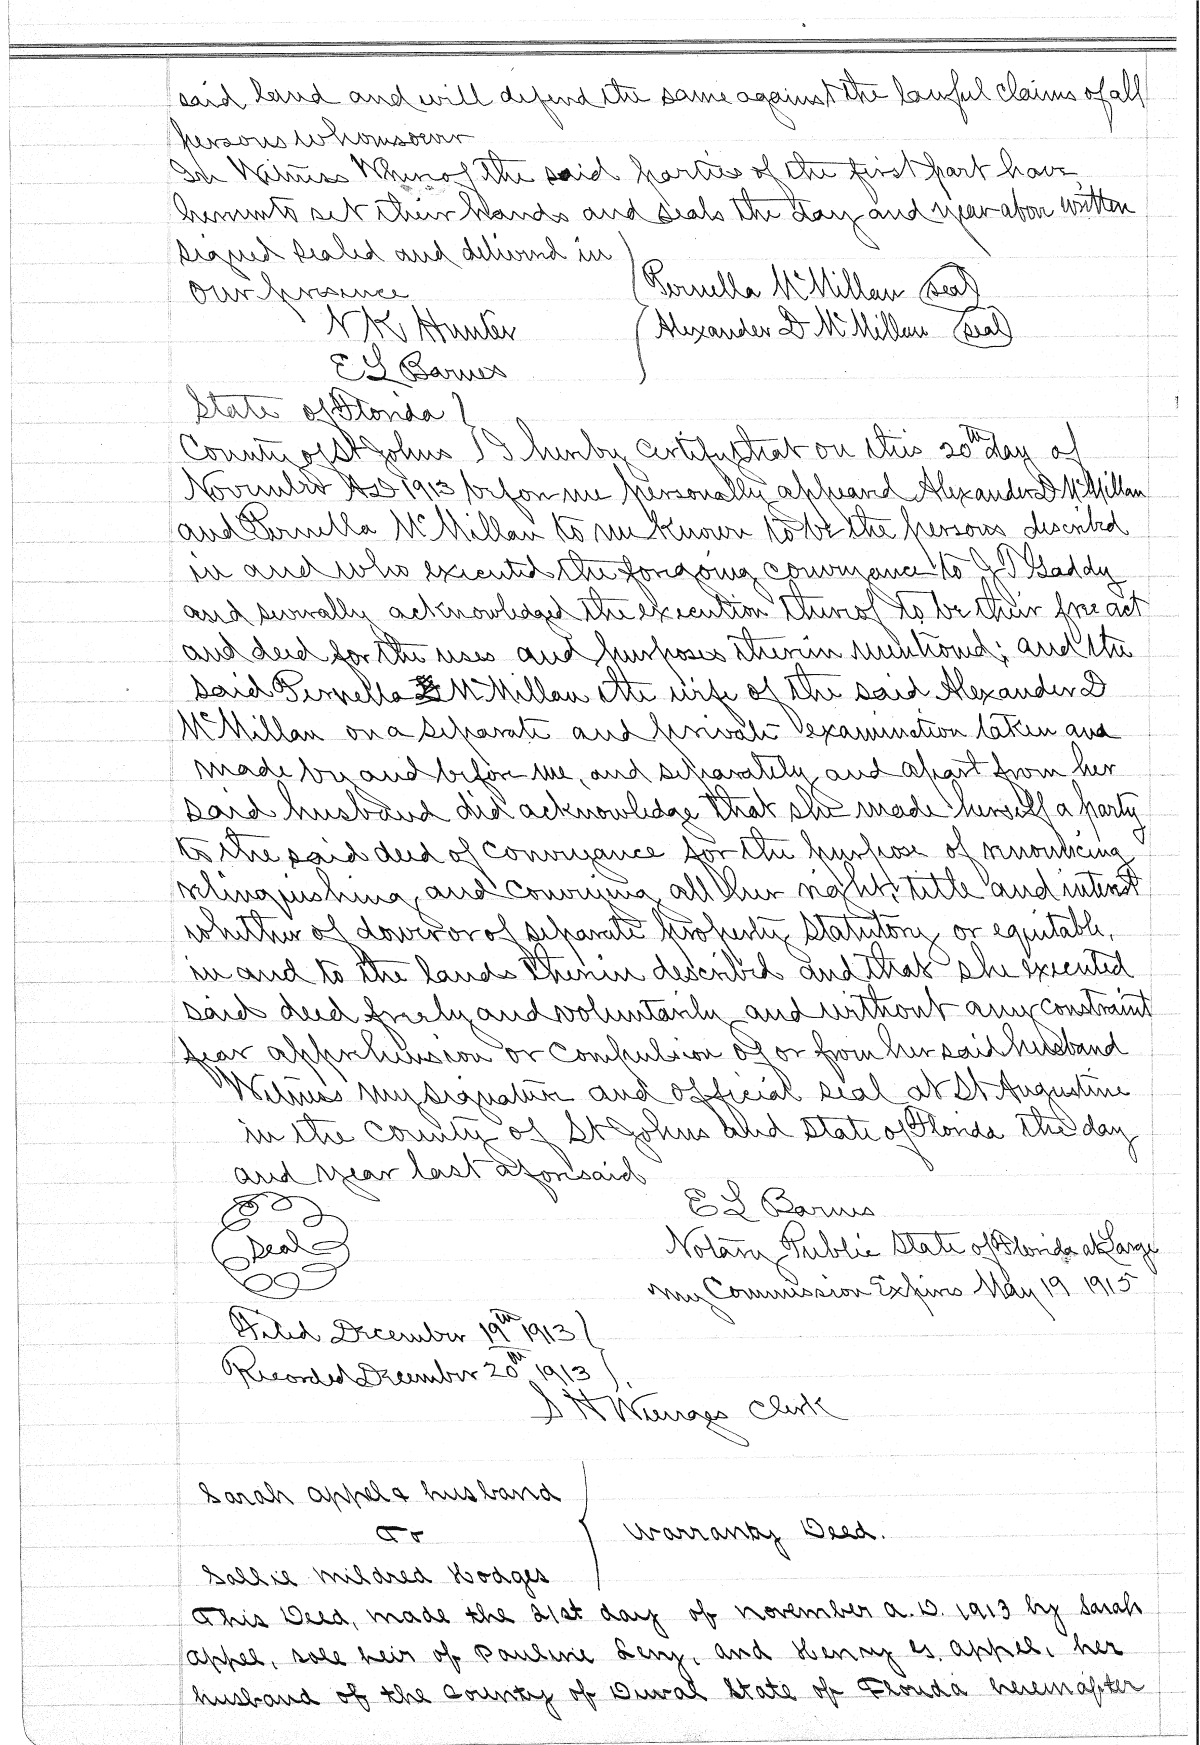 said land and will defend the same against the lawful claims of all
persons whomsoever
In Witness Whereof the said parties of the first part have
hereunto set their hands and seals the day and year above written
signed sealed and delivered in
our presence
Pernella McMillan (seal)
N K Hunter
Alexander D McMillan (seal)
E L Barnes
State of Florida
County of St Johns I hereby certify that on this 20th day of
November AD 1913 before me personally appeared Alexander D McMillan
and Pernella McMillan to me known to be the persons described
in and who executed the foregoing conveyance to J T Gaddy
and severally acknowledged the execution thereof to be their free act
and deed for the uses and purposes therein mentioned; and the
said Pernella McMillan the wife of the said Alexander D
McMillan on a separate and private examination taken and
made by and before me, and separately and apart from her
said husband did acknowledge that she made herself a party
to the said deed of conveyance for the purpose of renouncing
relinquishing and conveying all her right, title and interest
whether of dower or of separate property statutory or equitable,
in and to the lands therein described and that she executed
said deed freely and voluntarily and without any constraint
fear apprehension or compulsion of or from her said husband
Witness my signature and official seal at St Augustine
in the County of St Johns and State of Florida the day
and year last aforesaid
E L Barnes
Seal
Notary Public State of Florida at Large
my Commission Expires May 19 1915
Filed December 19th 1913
Recorded December 20th 1913
Clerk
Sarah appel & husband
To
Warranty Deed.
Sallie Mildred Hodges
This Deed, made the 21st day of november a. D. 1913 by Sarah
appel, sole heir of Pauline Levy, and Henry es. appel, her
husband of the County of Duval State of Florida hereinafter